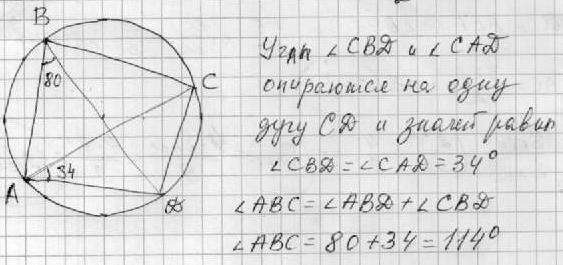 B
80
C
A
34
D
Углы ∠CBD и ∠CAD
опираются на одну
дугу CD и значит равны
∠CBD = ∠CAD = 34°
∠ABC = ∠ABD + ∠CBD
∠ABC = 80 + 34 = 114°